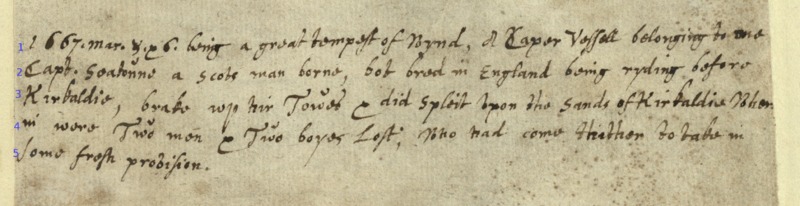 1667. mar. 5. & 6. being a great tempest of Wynd, A Caper Vessell belonging to one
Capt. Seatoune a Scots man borne, bot bred in England being ryding before
Kirkaldie, brake wp hir Towes & did Spleit Vpon the Sands of Kirkaldie Wher
in were Two men & Two boyes Lost, Who had come thither to take in
some fresh provision.